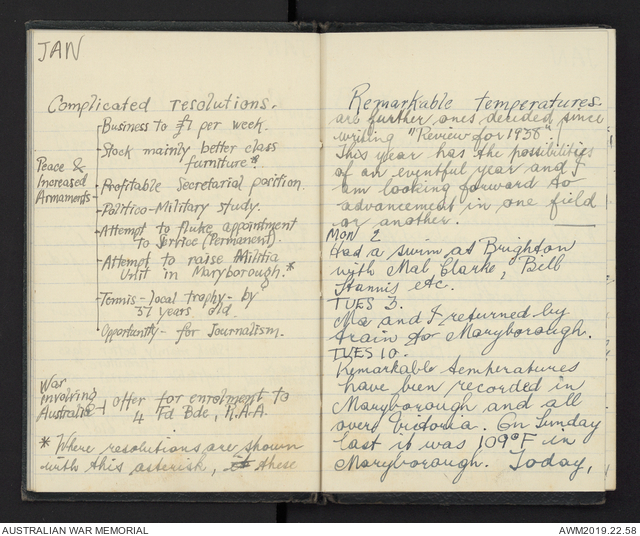 JAN
Complicated resolutions.
Peace &
Increased
Armaments
Business to £1 per week.
Stock mainly better class
furniture*.
Profitable Secretarial position.
Politico-Military study.
Attempt to fluke appointment
to Service (Permanent).
Attempt to raise Militia
Unit in Maryborough.*
Tennis - local trophy - by
37 years old.
Opportunity - for Journalism.
War
involving
Australia
Offer for enrolment to
4 Fd Bde, R.A.A.
* Where resolutions are shown
with this asterisk, these
Remarkable temperatures.
are further ones decided since
writing "Review for 1938".
This year has the possibilities
of an eventful year and I
am looking forward to
advancement in one field
or another.
MON 2
Had a swim at Brighton
with Mal, Clarke, Bill
Hannis etc.
TUES 3.
Ma and I returned by
train for Maryborough.
TUES 10.
Remarkable temperatures
have been recorded in
Maryborough and all
over Victoria. On Sunday
last it was 109°F in
Maryborough. Today,
AUSTRALIAN WAR MEMORIAL
AWM2019.22.58